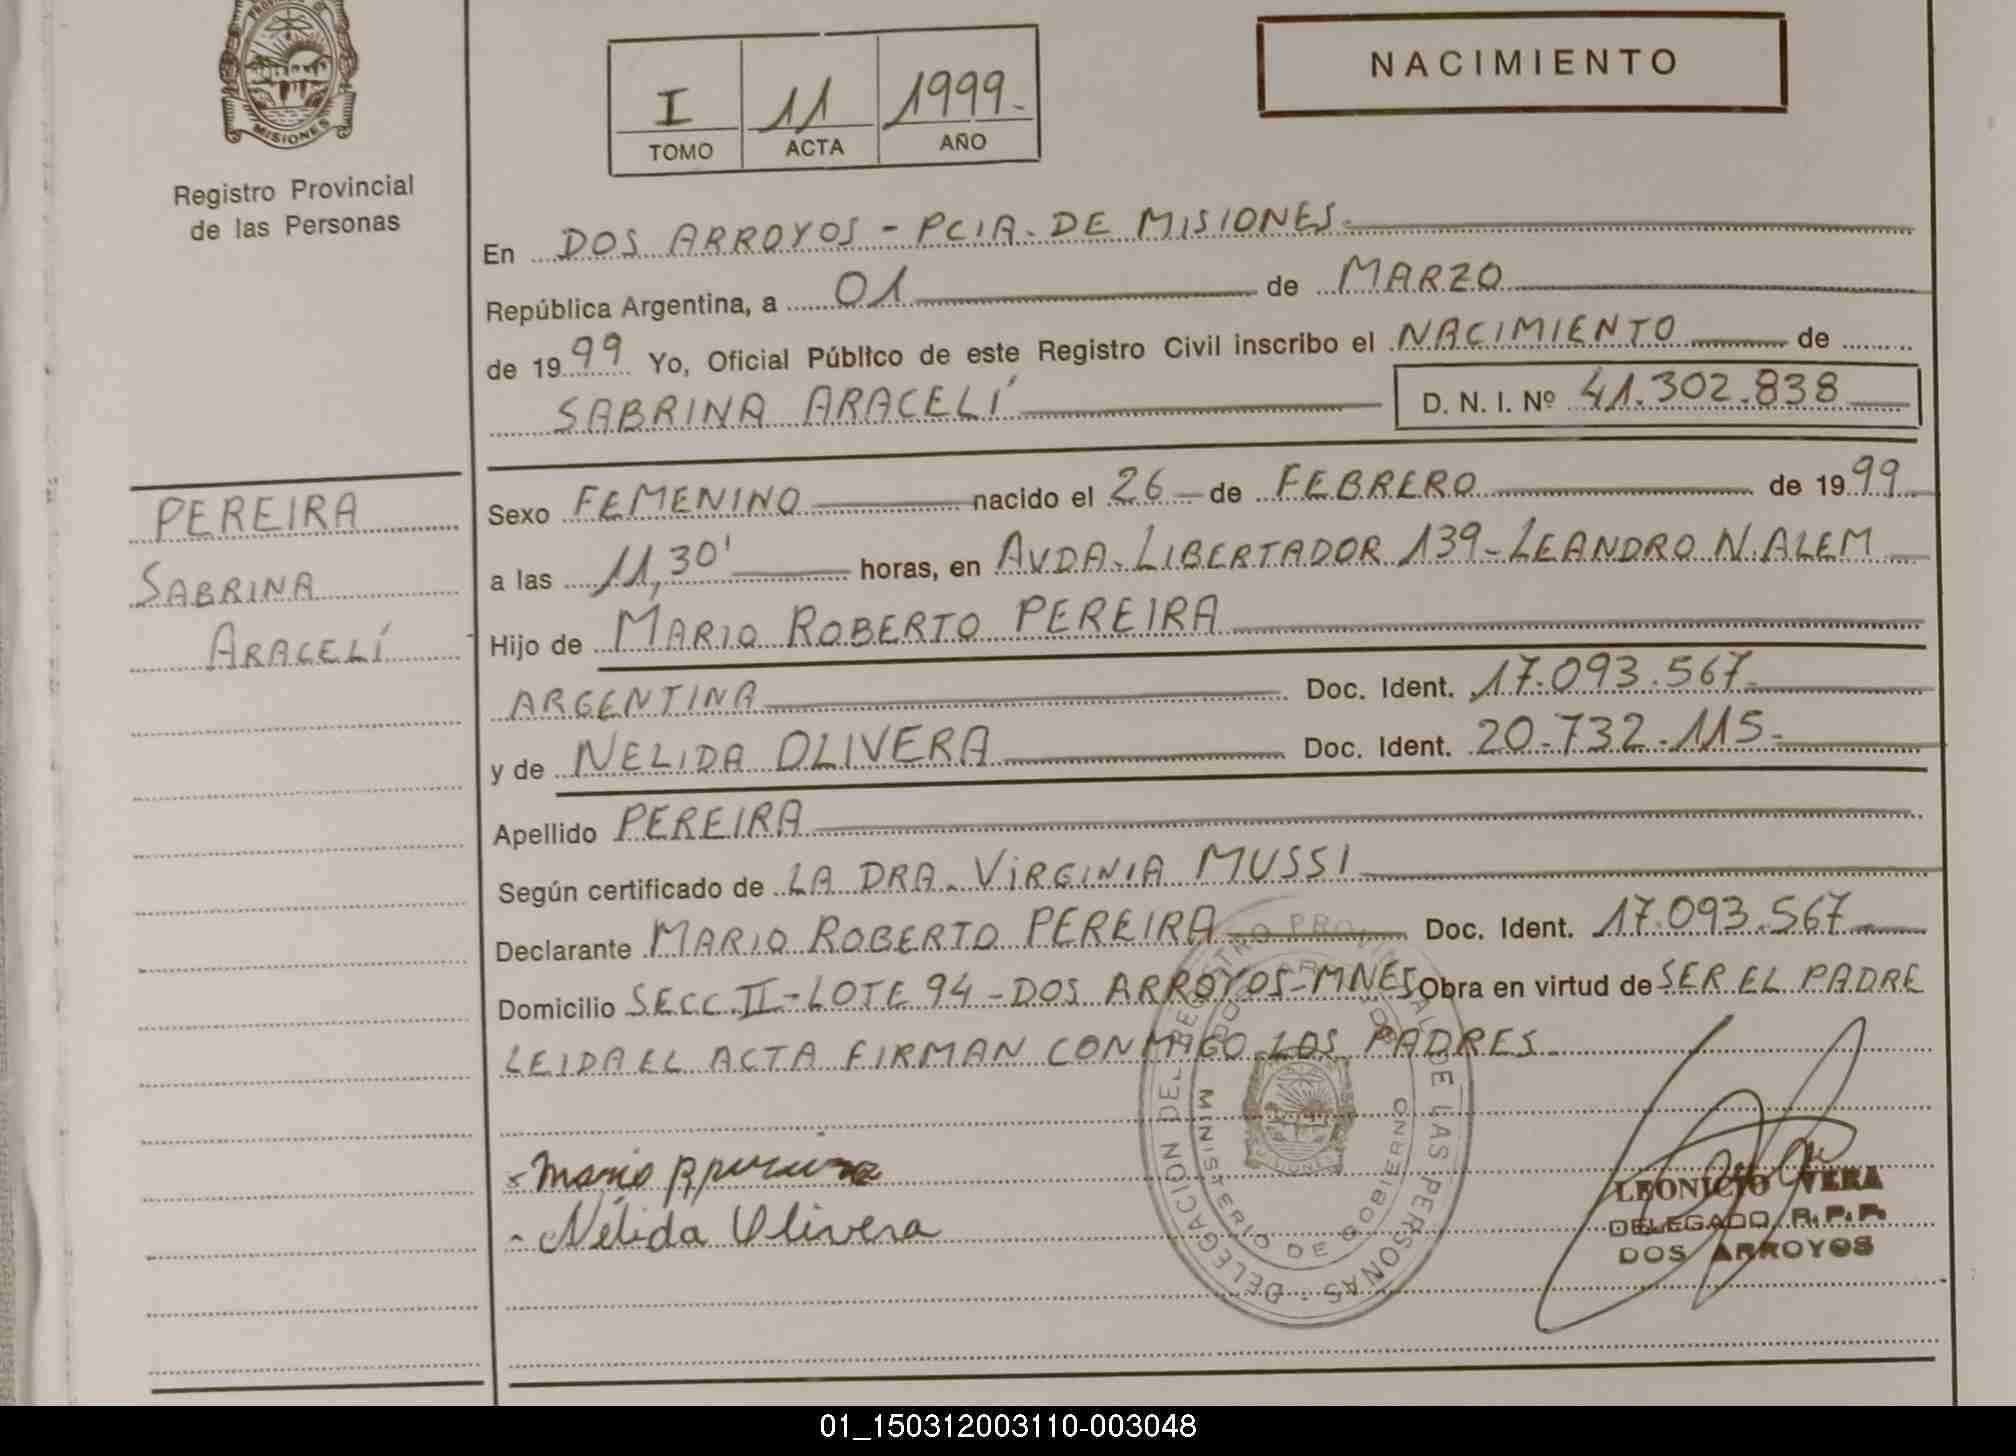 MISIONES
Registro Provincial
de las Personas
I 11 1999.
TOMO ACTA AÑO
NACIMIENTO
En DOS ARROYOS - PCIA. DE MISIONES.
República Argentina, a 01 de MARZO
de 1999 Yo, Oficial Público de este Registro Civil inscribo el NACIMIENTO de
SABRINA ARACELÍ D. N. I. Nº 41.302.838
PEREIRA
SABRINA
ARACELÍ
Sexo FEMENINO nacido el 26 de FEBRERO de 1999
a las 11,30' horas, en AVDA. LIBERTADOR 139-LEANDRO N. ALEM
Hijo de MARIO ROBERTO PEREIRA
ARGENTINA Doc. Ident. 17.093.567.
y de NELIDA OLIVERA Doc. Ident. 20.732.115.
Apellido PEREIRA
Según certificado de LA DRA. VIRGINIA MUSSI
Declarante MARIO ROBERTO PEREIRA Doc. Ident. 17.093.567
Domicilio SECC. II-LOTE 94-DOS ARROYOS-MNES Obra en virtud de SER EL PADRE
LEIDA EL ACTA FIRMAN CONMIGO LOS PADRES.
- Mario R. pereira
- Nélida Olivera
DELEGACION DEL REGISTRO PROVINCIAL DE LAS PERSONAS
MINISTERIO DE GOBIERNO
LEONICIO VERA
DELEGADO R.P.P.
DOS ARROYOS
01_150312003110-003048